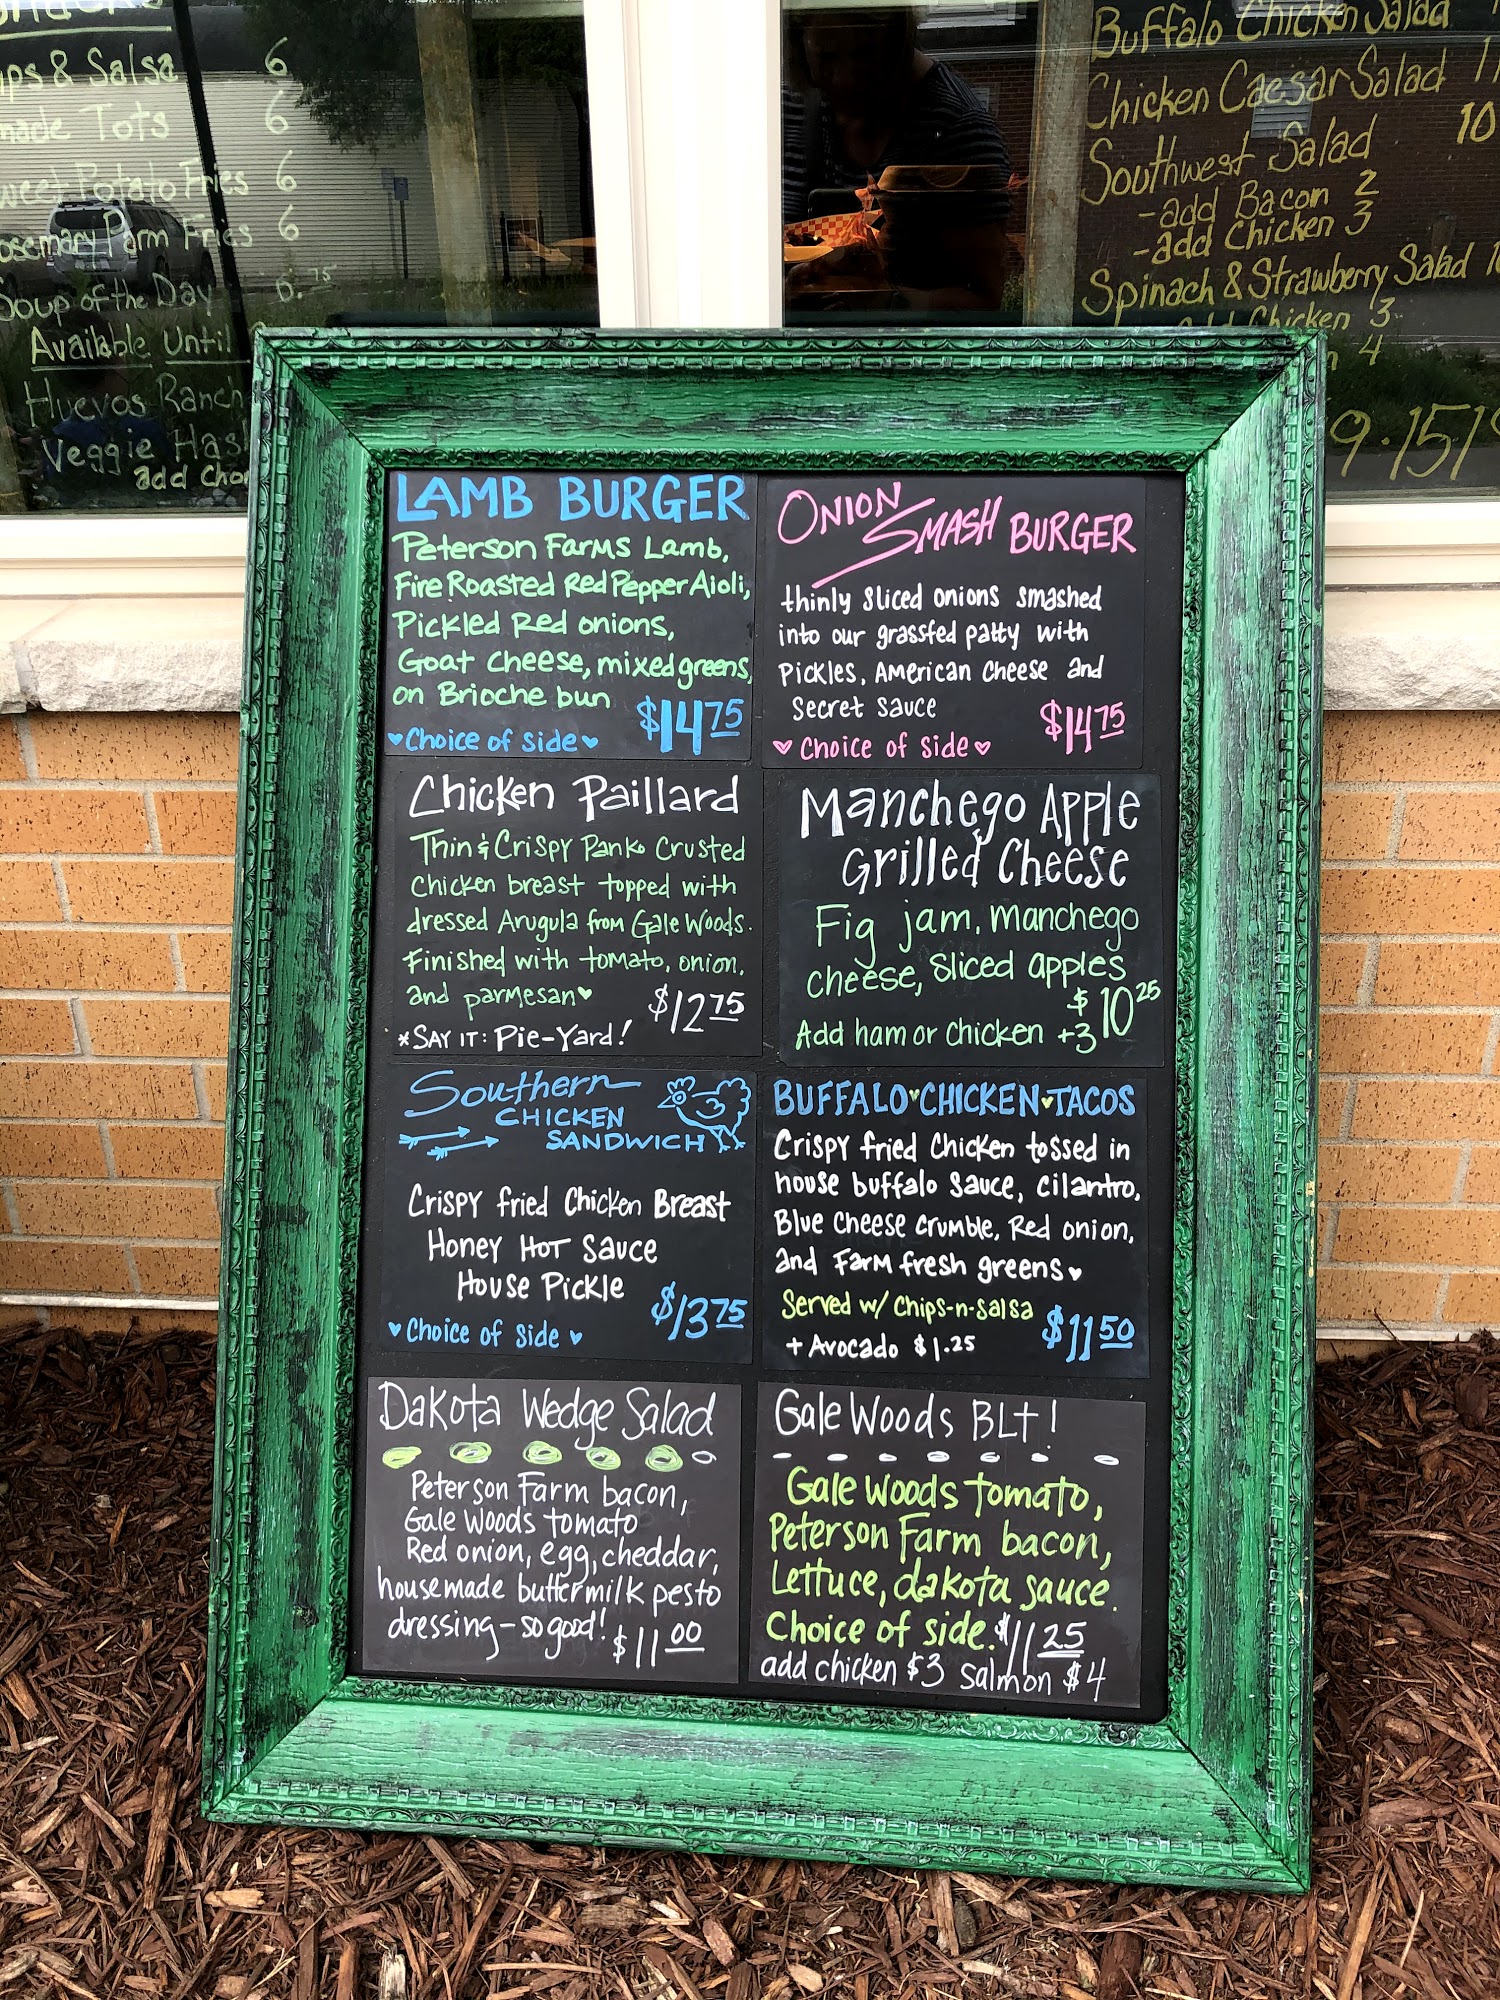 & Salsa 6
Tots 6
Potato Fries 6
Parm Fries 6
Soup of the Day 6.75
Available Until
Huevos
Veggie
add
Buffalo Chicken Salad
Chicken Caesar Salad
Southwest Salad 10
-add Bacon 2
-add Chicken 3
Spinach & Strawberry Salad
Chicken 3
4
LAMB BURGER
Peterson Farms Lamb,
Fire Roasted Red Pepper Aioli,
Pickled Red onions,
Goat cheese, mixed greens,
on Brioche bun $14.75
♥Choice of side♥
ONION
SMASH BURGER
thinly sliced onions smashed
into our grassfed patty with
Pickles, American Cheese and
Secret Sauce $14.75
♥ Choice of side ♥
Chicken Paillard
Thin & Crispy Panko Crusted
Chicken breast topped with
dressed Arugula from Gale Woods.
Finished with tomato, onion,
and parmesan♥ $12.75
*SAY IT: Pie-Yard!
Manchego Apple
Grilled Cheese
Fig jam, manchego
cheese, sliced apples
$10.25
Add ham or chicken +3
Southern
CHICKEN
SANDWICH
Crispy fried Chicken Breast
Honey Hot Sauce
House Pickle
$13.75
♥ Choice of side ♥
BUFFALO♥CHICKEN♥TACOS
Crispy fried Chicken tossed in
house buffalo sauce, cilantro,
Blue Cheese crumble, Red onion,
and Farm fresh greens♥
Served w/ Chips-n-Salsa
+ Avocado $1.25 $11.50
Dakota Wedge Salad
Peterson Farm bacon,
Gale Woods tomato
Red onion, egg, cheddar,
housemade buttermilk pesto
dressing-so good! $11.00
Gale Woods BLT!
Gale Woods tomato,
Peterson Farm bacon,
Lettuce, dakota sauce.
Choice of side. $11.25
add chicken $3 salmon $4